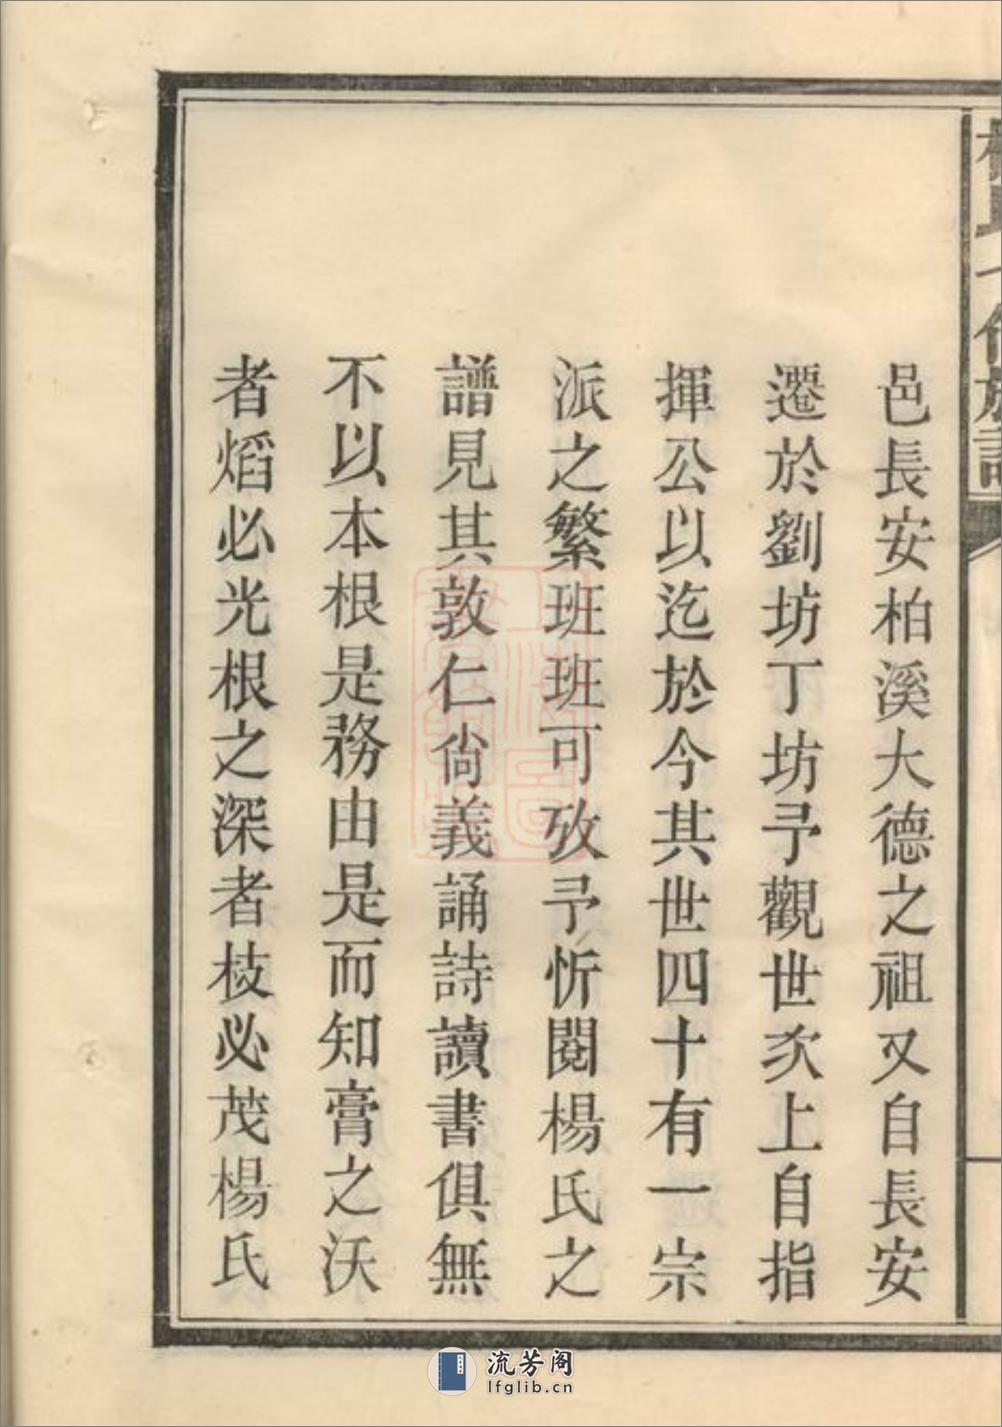 邑長安柏溪大德之祖又自長安
遷於劉坊丁坊予觀世次上自指
揮公以迄於今其世四十有一宗
派之繁班班可攷予忻閱楊氏之
譜見其敦仁尙義誦詩讀書俱無
不以本根是務由是而知膏之沃
者熖必光根之深者枝必茂楊氏
流芳阁
lfglib.cn